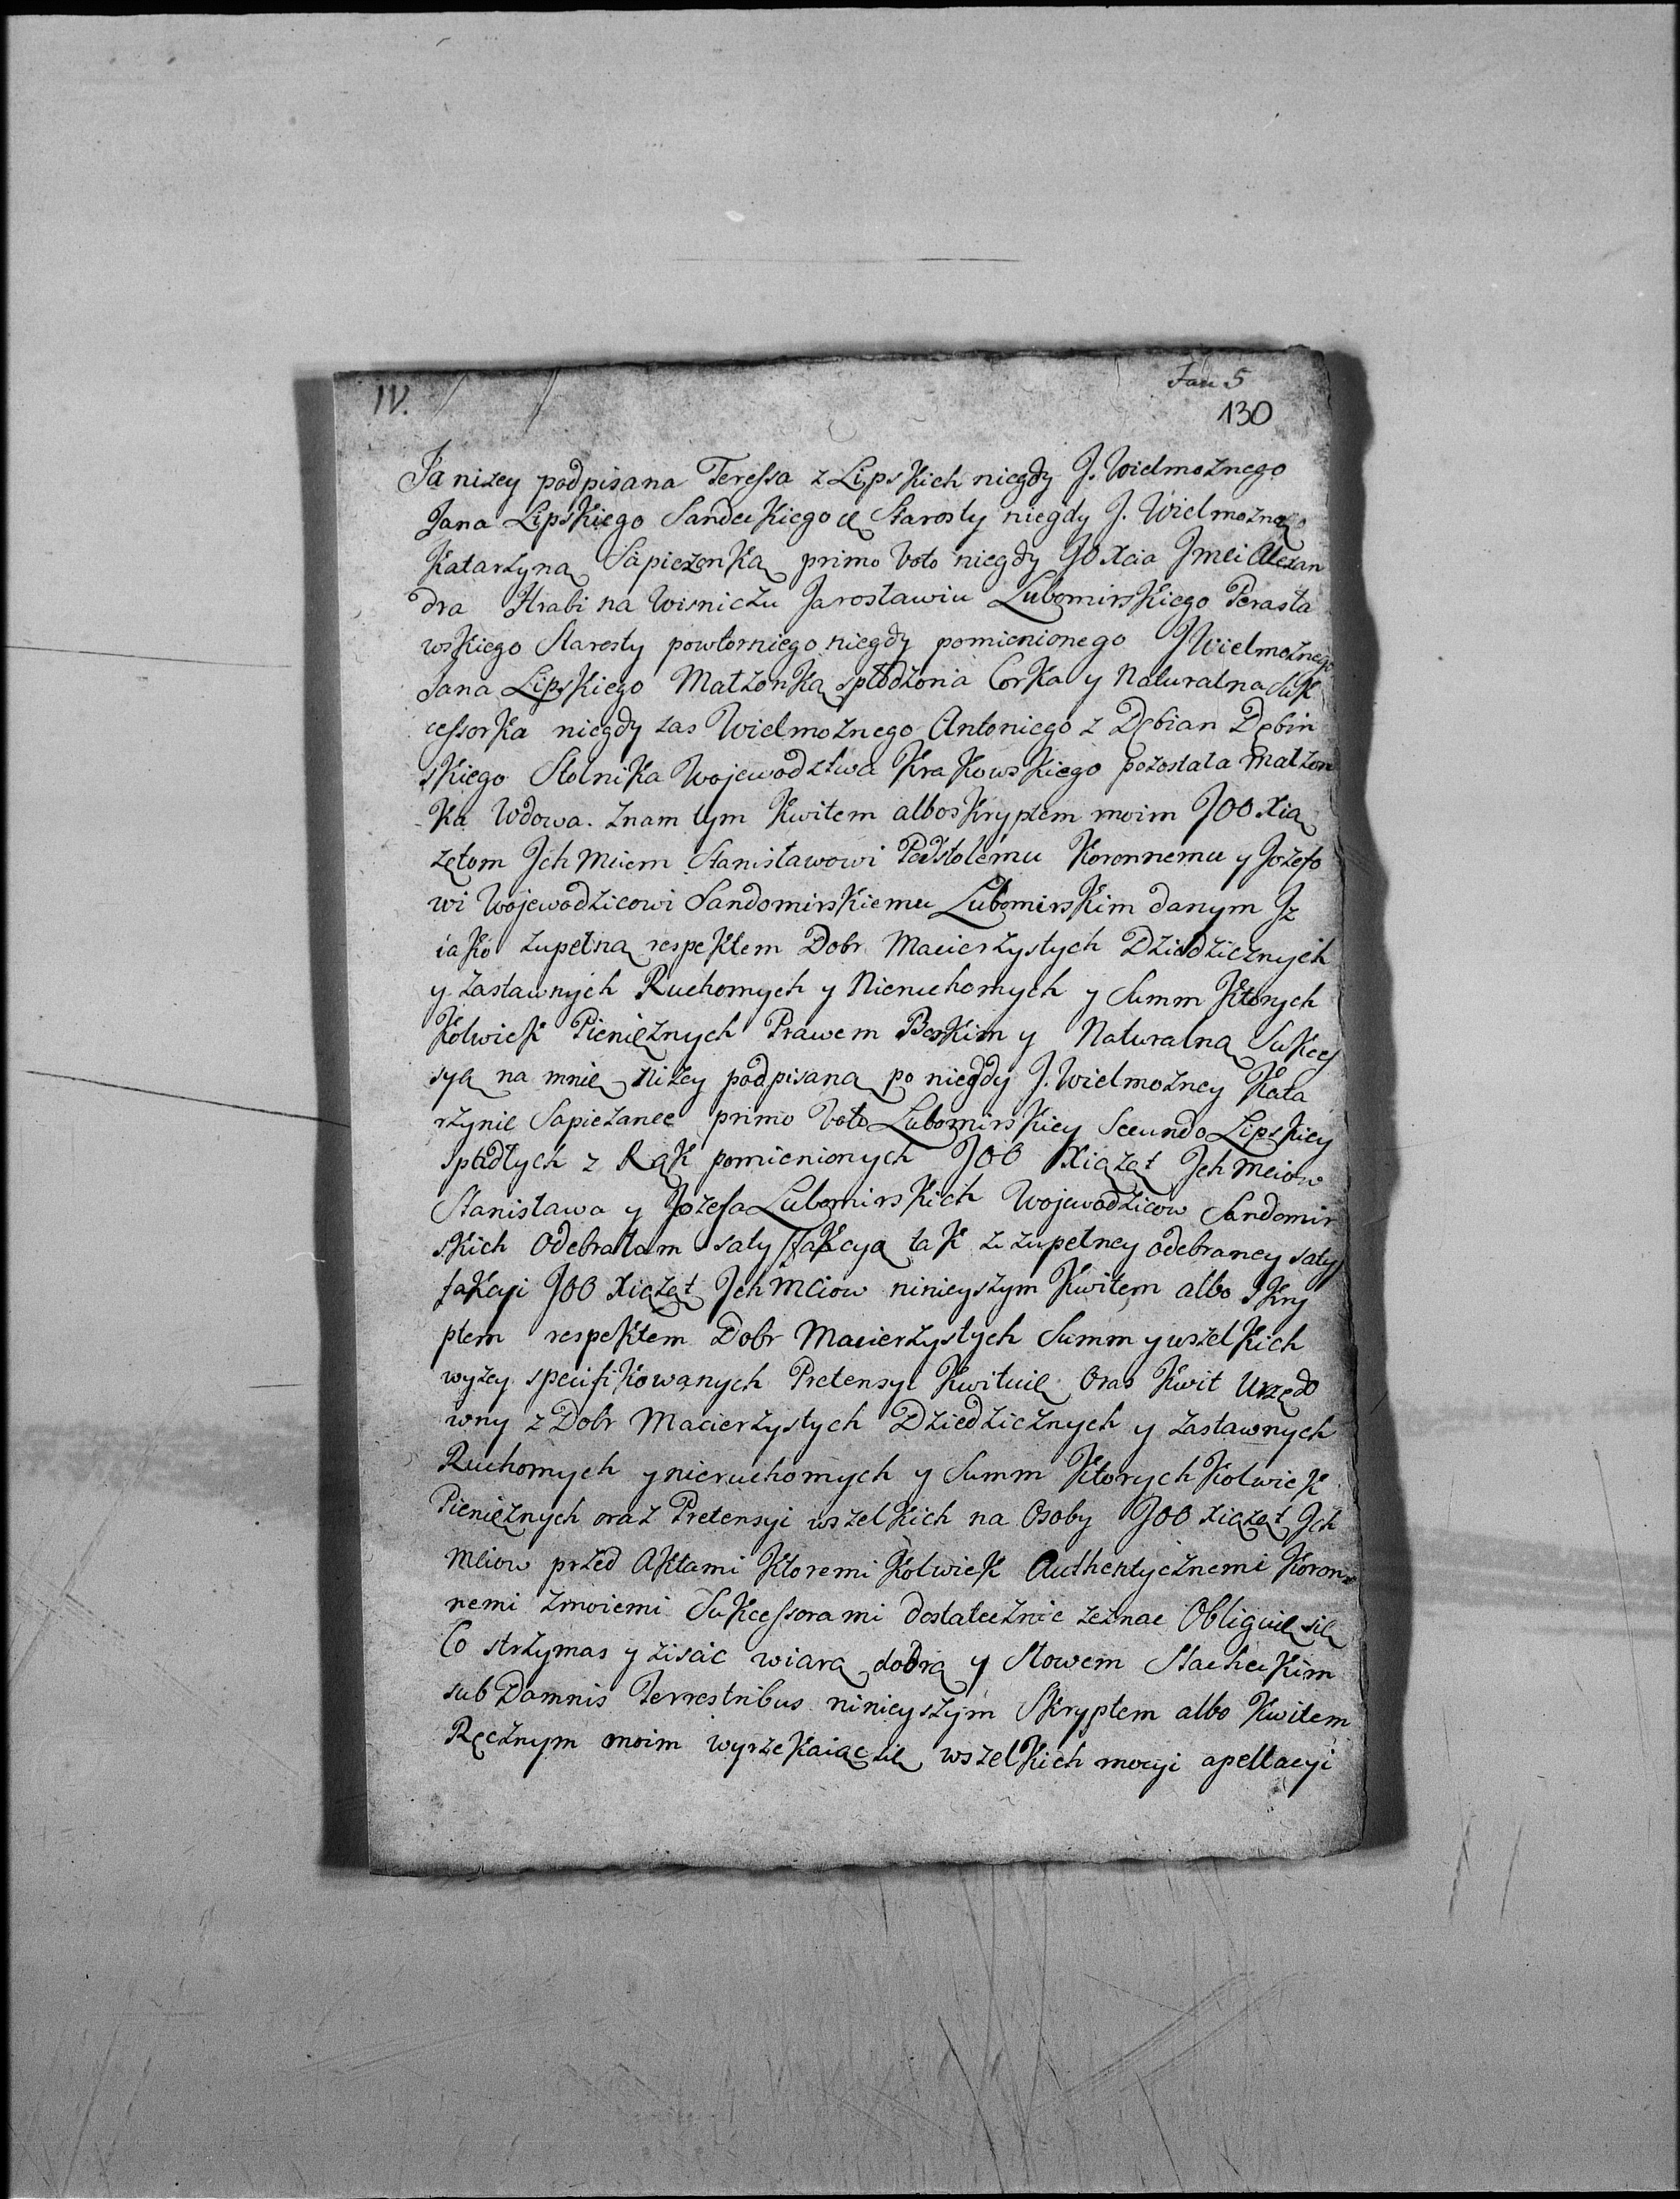 IV.
5
130
Ja nizey podpisana Teressa z Lipskich niegdy J. Wielmoznego
Jana Lipskiego Sandeckiego ec Starosty niegdy J. Wielmozną
Katarzyną Sapiezonką primo voto niegdy JO Xcia Jmci Alexan
dra Hrabi na Wisniczu Jarosławiu Lubomirskiego Perasła
wskiego Starosty powtorniego niegdy pomienionego JWielmoznego
Jana Lipskiego Małzonką spłodzona Corka y Naturalna Suk
cessorka niegdy zas Wielmoznego Antoniego z Dębian Dębin
skiego Stolnika Wojewodztwa Krakowskiego pozostała Małzon
ka Wdowa. Znam tym Kwitem albo skryptem moim JOO Xią
zętom Jch Mciem Stanisławowi Podstolemu Koronnemu y Jozefo
wi Wojewodzicowi Sandomirskiemu Lubomirskim danym Jz
iako zupełną respektem Dobr Macierzystych Dziedzicznych
y zastawnych Ruchomych y Nieruchomych y Summ Ktorych
Kolwiek Pieniężnych Prawem Boskim y Naturalną Sukces
syą na mnie nizey podpisaną po niegdy J. Wielmozney Kata
rzynie Sapiezance primo voto Lubomirskiey Secundo Lipskiey
spadłych z Rąk pomienionych JOO Xiążąt Jch Mciow
Stanisława y Jozefa Lubomirskich Wojewodzicow Sandomir
skich Odebrałam satysfakcyą tak z zupełney odebraney satys
fakcyi JOO Xiążąt Jch Mciow ninieyszym Kwitem albo Skry
ptem respektem Dobr Macierzystych Summ y wszelkich
wyzey specifikowanych Pretensyi Kwituię Oraz Kwit Urzędo
wny z Dobr Macierzystych Dziedzicznych y zastawnych
Ruchomych y nieruchomych y Summ Ktorych Kolwiek
Pieniężnych oraz Pretensyi wszelkich na Osoby JOO Xiążąt Jch
Mciow przed Aktami Ktoremi Kolwiek Authentycznemi Koron
nemi zmoiemi Sukcessorami dostatecznie zeznac Obliguię się
Co strzymas y zisćic wiarą dobrą y Słowem Slacheckim
sub Damnis Terrestribus ninieyszym Skryptem albo Kwitem
Ręcznym moim wyrzekaiąc się wszelkich mocyi apellacyi